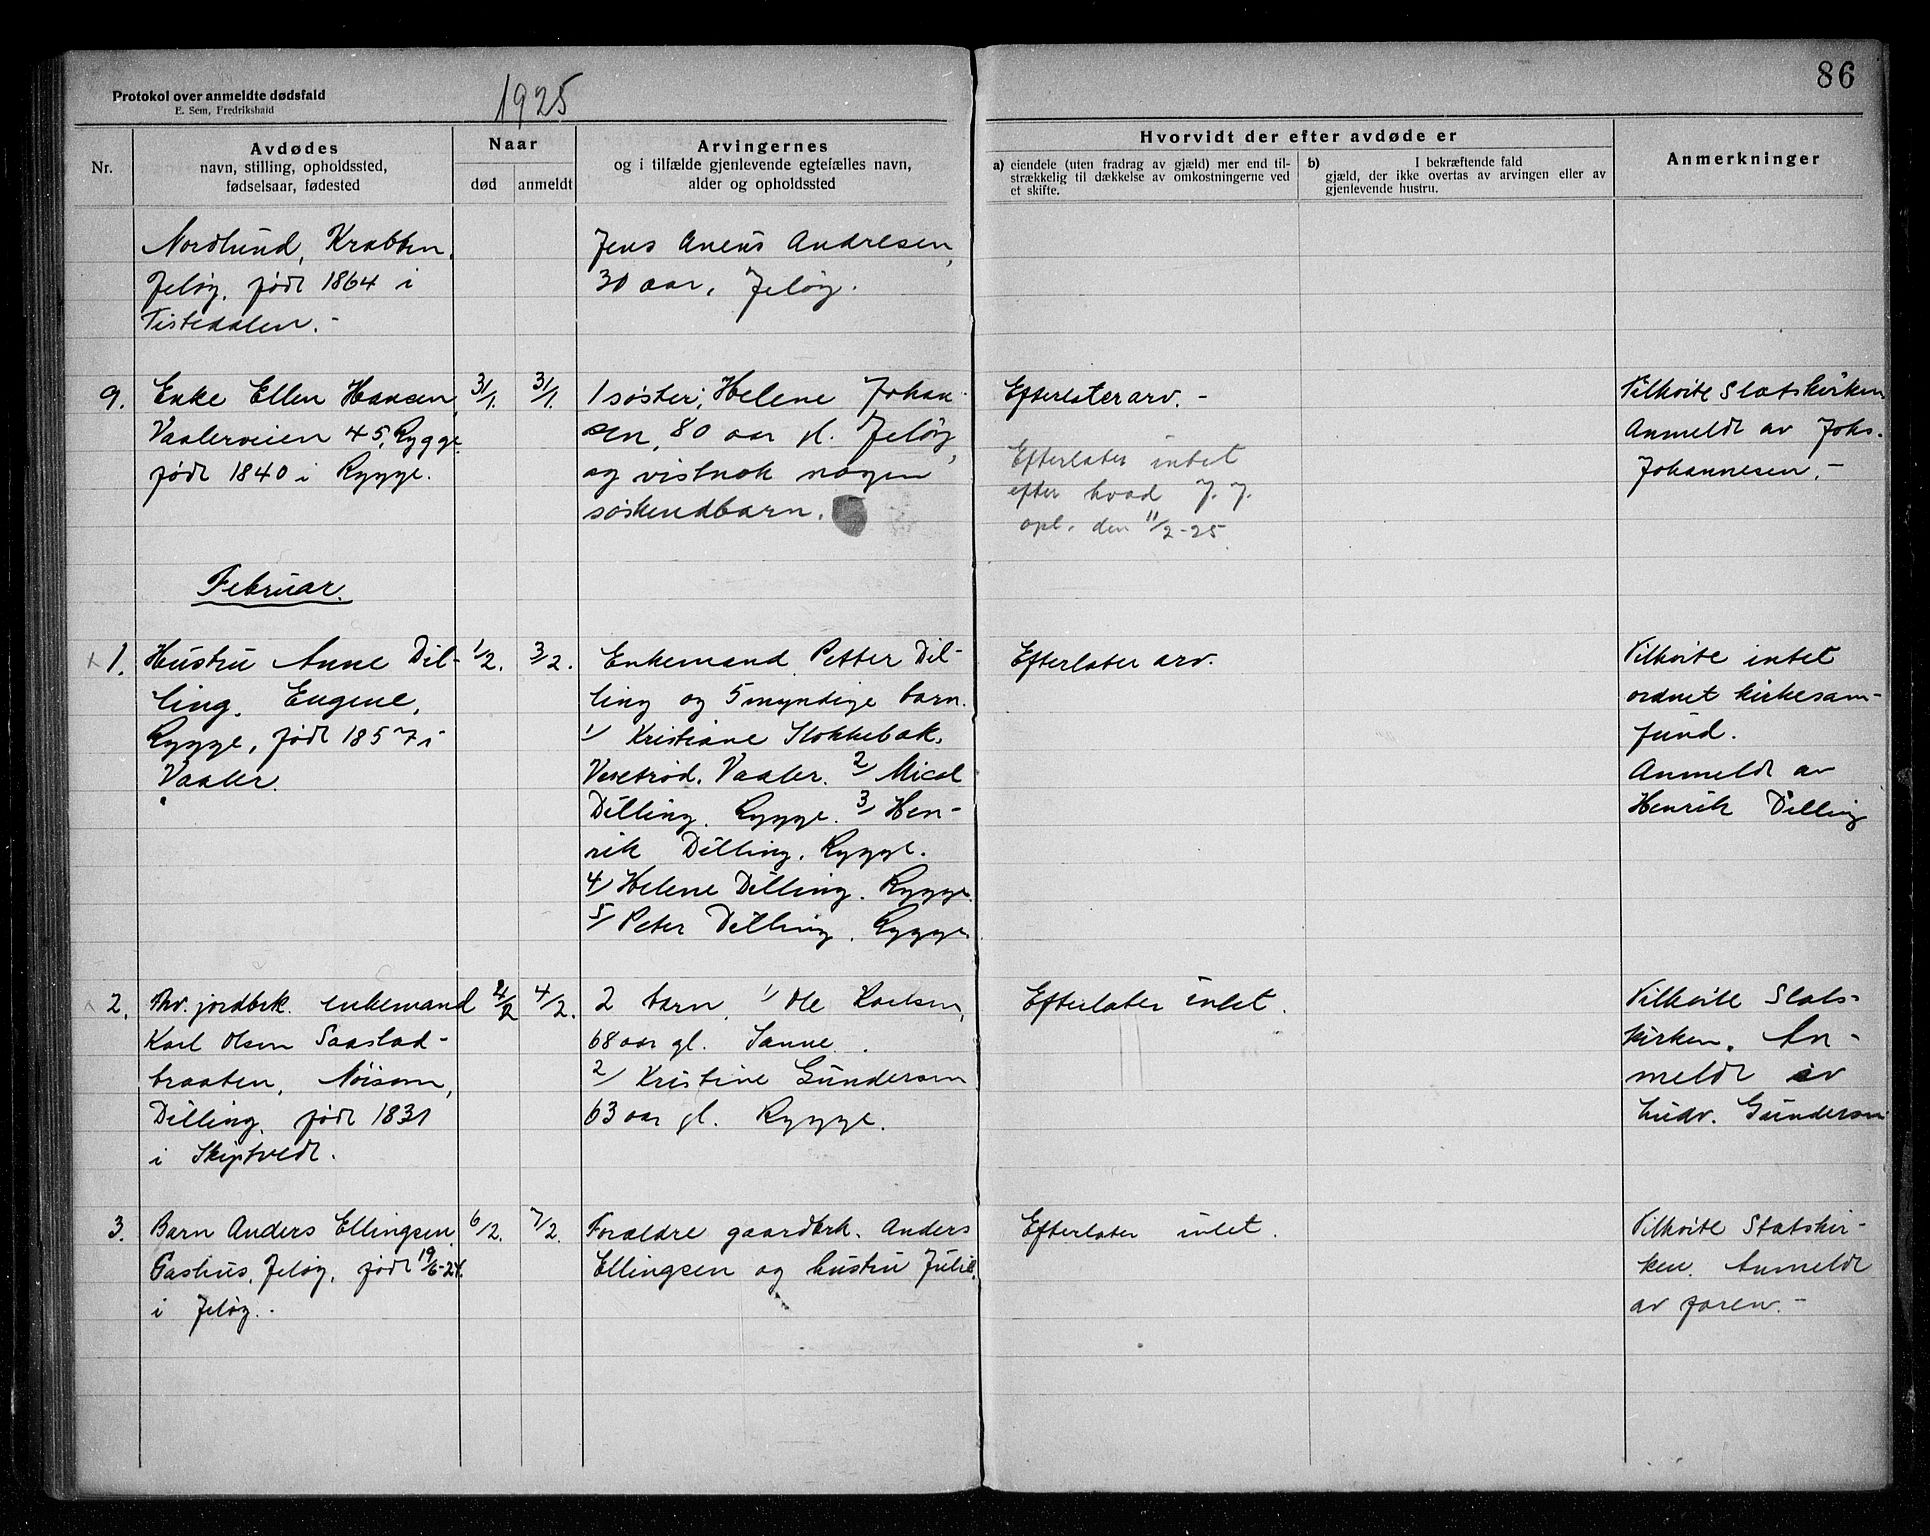 86
Protokol over anmeldte dødsfald
E. Sem, Fredrikshald
1925
Nr.
Avdødes
navn, stilling, opholdssted,
fødselsaar, fødested
Naar
død
anmeldt
Arvingernes
og i tilfælde gjenlevende egtefælles navn,
alder og opholdssted
Hvorvidt der efter avdøde er
a) eiendele (uten fradrag av gjæld) mer end til-
strækkelig til dækkelse av omkostningerne ved
et skifte.
b) I bekræftende fald
gjæld, der ikke overtas av arvingen eller av
gjenlevende hustru.
Anmerkninger
Nordlund, Krabben,
Jeløy, født 1864 i
Tistedalen.-
Jens Aneus Andresen,
30 aar, Jeløy.
9.
Enke Ellen Hansen,
Vaalerveien 45, Rygge
født 1840 i Rygge.
31/1.
31/1.
1 søster, Helene Johan-
sen, 80 aar gl. Jeløy,
og vistnok nogen
søskendbarn.
Efterlater arv. -
Efterlater intet
efter hvad J. J.
opl. den 11/2-25.
Tilhørte Statskirken
Anmeldt av Johs.
Johannesen. -
Februar.
x 1.
Hustru Anne Dil-
ling, Eugene,
Rygge, født 1857 i
Vaaler.
1/2.
3/2.
Enkemand Petter Dil-
ling og 5 myndige barn.
1/ Kristiane Stokkebæk,
Vaaler. 2/ Mical
Dilling, Rygge. 3/ Hen-
rik Dilling, Rygge.
4/ Helene Dilling, Rygge.
5/ Peter Dilling, Rygge.
Efterlater arv.
Tilhørte intet
ordnet kirkesam-
fund.
Anmeldt av
Henrik Dilling
x 2.
Fhv. jordbrk. enkemand
Karl Olsen Saastad-
braaten, Nøisom,
Dilling, født 1831
i Skiptvedt.
2/2
4/2.
2 barn, 1/ Ole Karlsen,
68 aar gl. Sanne.
2/ Kristine Gundersen
63 aar gl. Rygge.
Efterlater intet.
Tilhørte Stats-
kirken. An-
meldt av
Ludv. Gundersen
3.
Barn Anders Ellingsen,
Gashus, Jeløy, født 19/6-24.
i Jeløy.-
6/2.
7/2.
Forældre gaardbrk. Anders
Ellingsen og hustru Julie.
Efterlater intet.
Tilhørte Statskir-
ken. Anmeldt
av faren. -